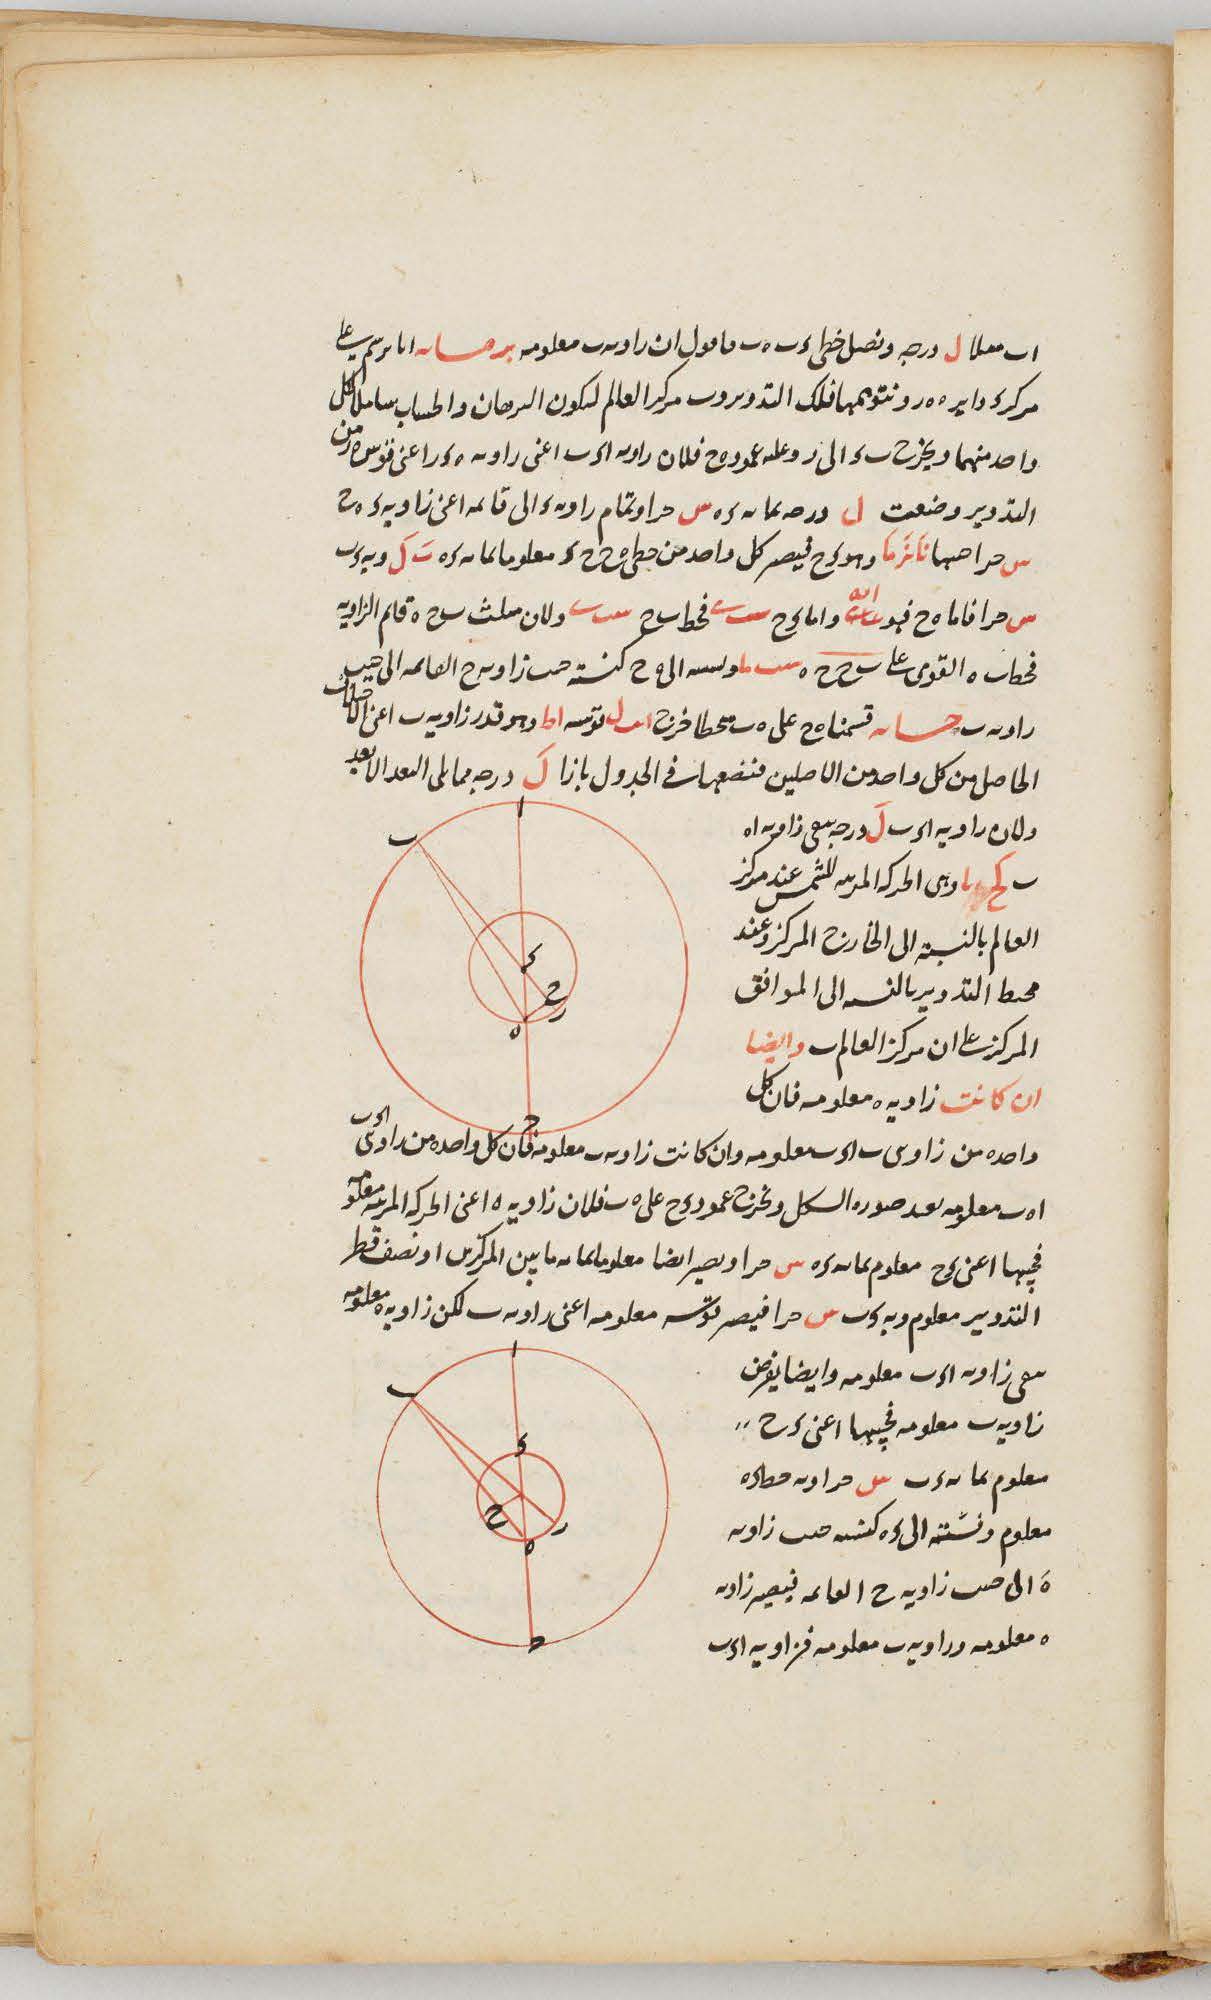 اب مثلا ل درجه ونصل خطى ءب ه ب فاقول ان زاويه ب معلومه برهانه انا نرسم على
مركز ء دايره ه ر ونتوهمها فلك التدوير وب مركز العالم ليكون البرهان والحساب شاملا لكل
واحد منهما ويخرج ب ء الى ر وعليه عمود ه ح فلان زاويه اءب اعنى زاويه ه ء ر اعنى قوس ه ر من
التدوير وضعت ل درجه بما به ءه س جزا وتمام زاويه ء الى قايمه اعنى زاويه ء ه ح
س جزا جيبها وهو ءح فيصير كل واحد من خطى ه ح ح ء معلوما بما به ءه ب ل وبه ءب
س جزا فاما ه ح فهو واما ءح فخط ب ح ولان مثلث ب ح ه قايم الزاويه
فخط ب ه القوى على ب ح ح ه ونسبته الى ه ح كنسبه جيب زاويه ح القايمه الى جيب
زاويه ب حسابه قسمنا ه ح على ه ب منحطا خرج قوسه وهو قدر زاويه ب اعنى الاختلاف
الحاصل من كل واحد من الاصلين فنضعها فى الجدول بازا ل درجه مما يلى البعد الابعد
ولان زاويه اءب ل درجه يبقى زاويه اه
ب وهى الحركه المرئيه للشمس عند مركز
العالم بالنسبه الى الخارج المركز وعند
محيط التدوير بالنسبه الى الموافق
المركز على ان مركز العالم ب وايضا
ان كانت زاويه ه معلومه فان كل
واحده من زاويتى ب اءب معلومه وان كانت زاويه ب معلومه فان كل واحده من زاويتى اءب
اه ب معلومه نعيد صوره الشكل ونخرج عمود ءح على ه ب فلان زاويه ه اعنى الحركه المرئيه معلومه
فجيبها اعنى ءح معلوم بما به ءه س جزا ويصير ايضا معلوما بما به ما بين المركزين او نصف قطر
التدوير معلوم وبه ءب س جزا فيصير قوسه معلومه اعنى زاويه ب لكن زاويه ه معلومه
يبقى زاويه اءب معلومه وايضا يفرض
زاويه ب معلومه فجيبها اعنى ءح
معلوم بما به ءب س جزا وبه خط ءه
معلوم ونسبته الى ءه كنسبه جيب زاويه
ه الى جيب زاويه ح القايمه فيصير زاويه
ه معلومه وزاويه ب معلومه فزاويه اءب
ا
ب
ء
ح
ر
ه
ج
ا
ب
ء
ح
ر
ه
ج